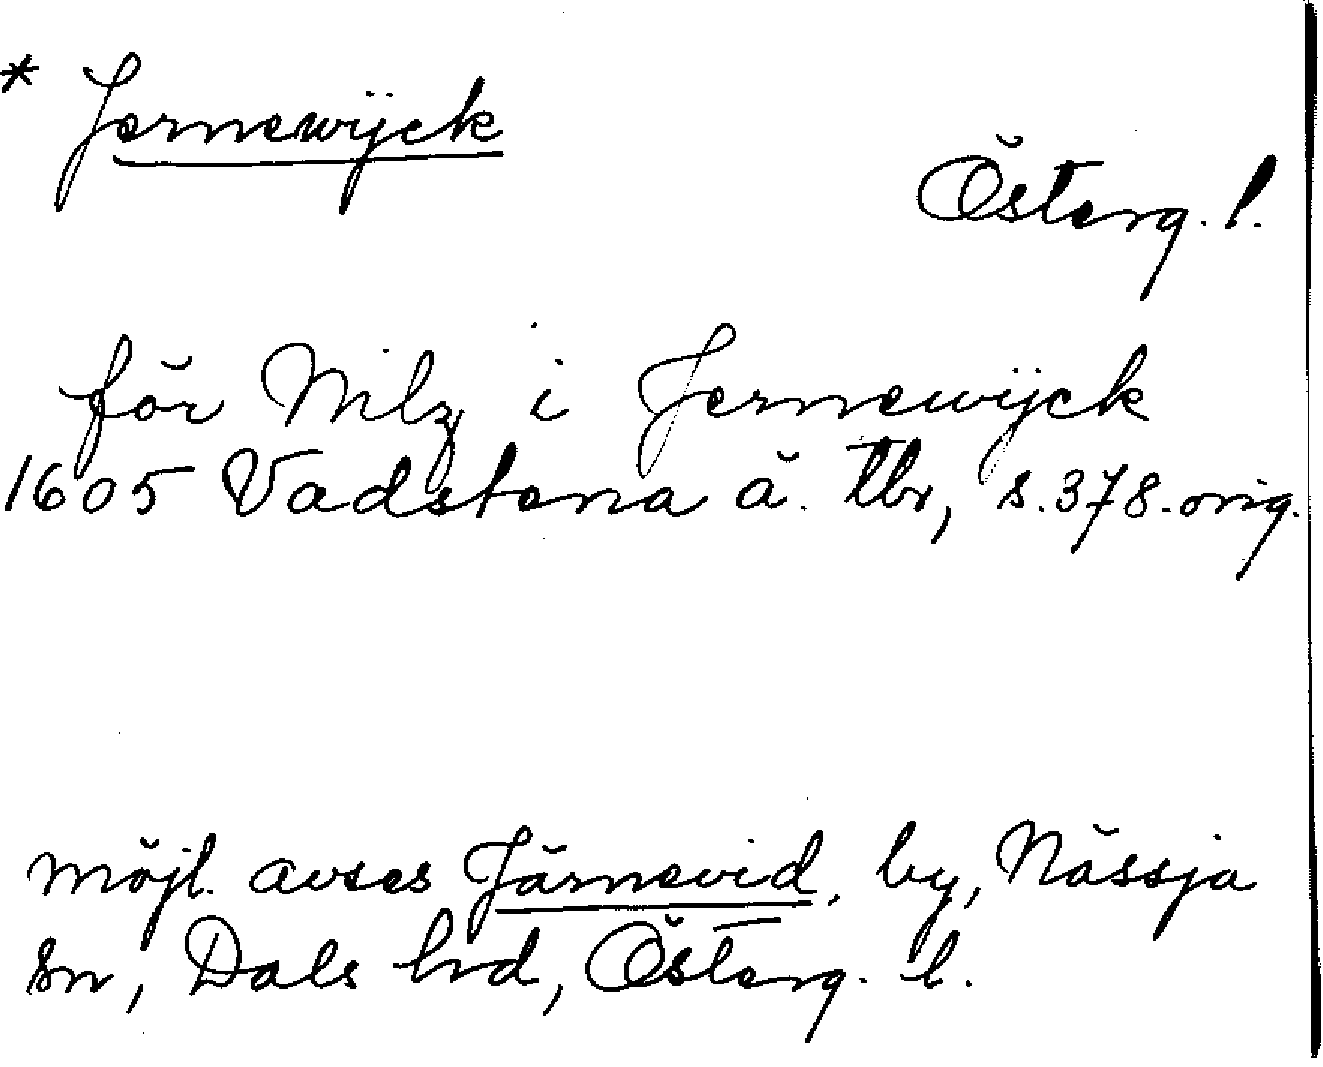 * Jernewÿck
Österg. l.
för Nilz i Jernewÿck
1605 Vadstena ä. tbr, s.378.orig.
möjl. avses Järnevid, by, Nässja
sn, Dals hrd, Österg. l.